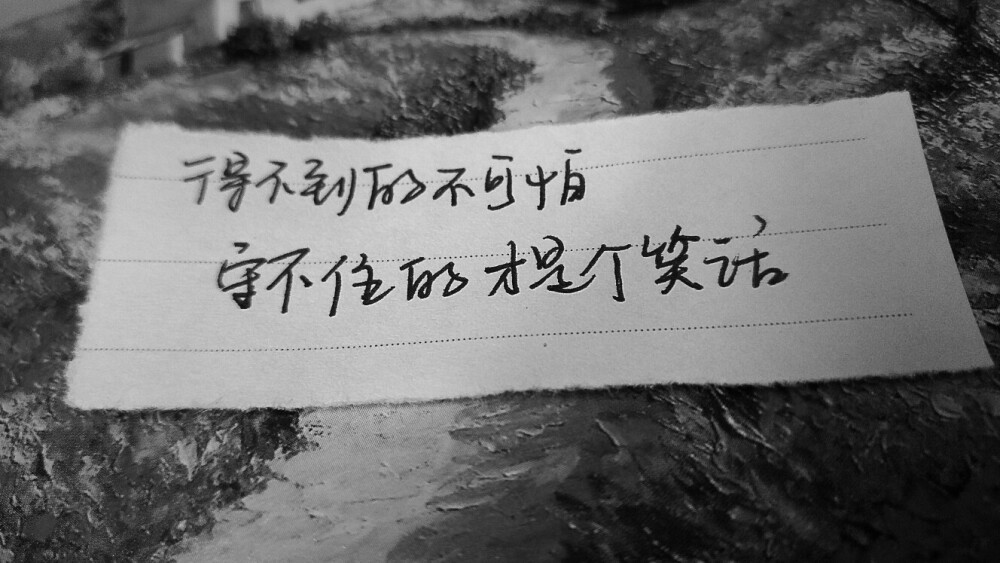 得不到的不可怕
守不住的才是个笑话